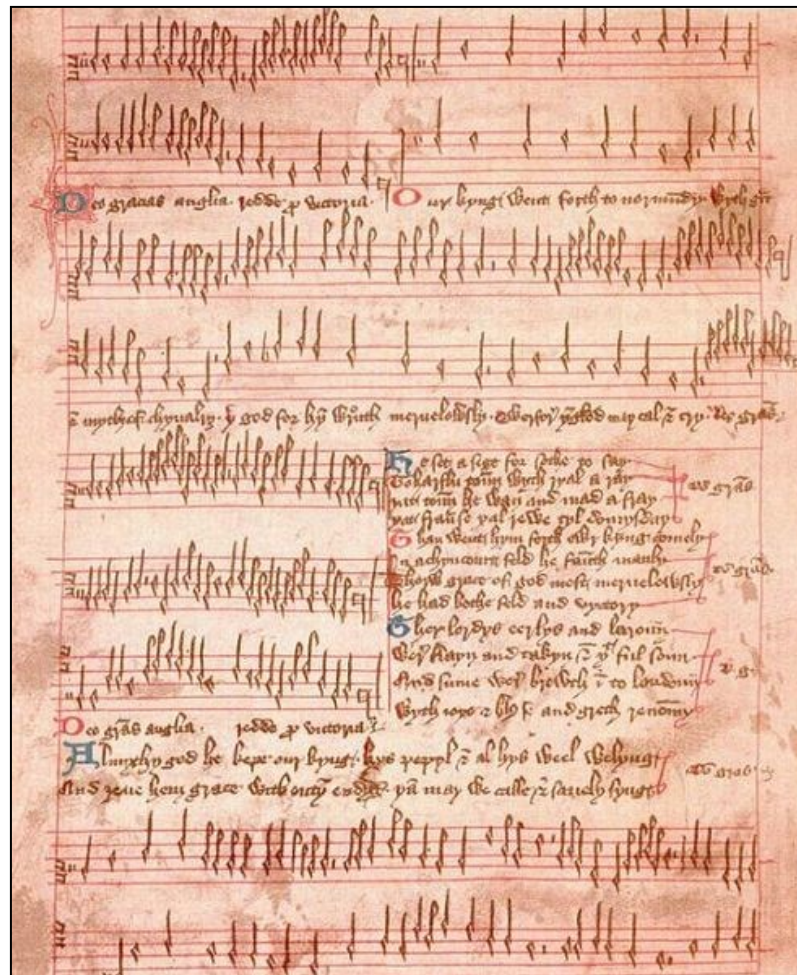 Deo gracias anglia. redde p victoria. Owr kynge went forth to normandy. wyth gr
& myth of chyvalry. y god for hy wrouth mervelowsly. qwerfor ynglond may cal & cry. deo gras
He set a sege for sothe to say
To harflu toun wyth ryal a ray deo gras
yat toun he wan and mad a fray
yat fraunse yal rewe tyl domysday
Than went hym forth owr kyng comely
In achyncourt feld he fauth manly deo gras
Thorw grace of god most mervelowsly
he had bothe feld and vyctory
Ther lordys eerlys and baroun
Wer slayn and takyn & yt ful soun d. g.
And sume wer browth i to loundoun
Wyth ioye & blys and greth renoun
Deo gras anglia. redde p victoria
Almythy god he kepe our kynge. hys pepyl & al hys weel welynge
And yeve hem grace wythouty endyng. yan may we calle & savely synge deo gras